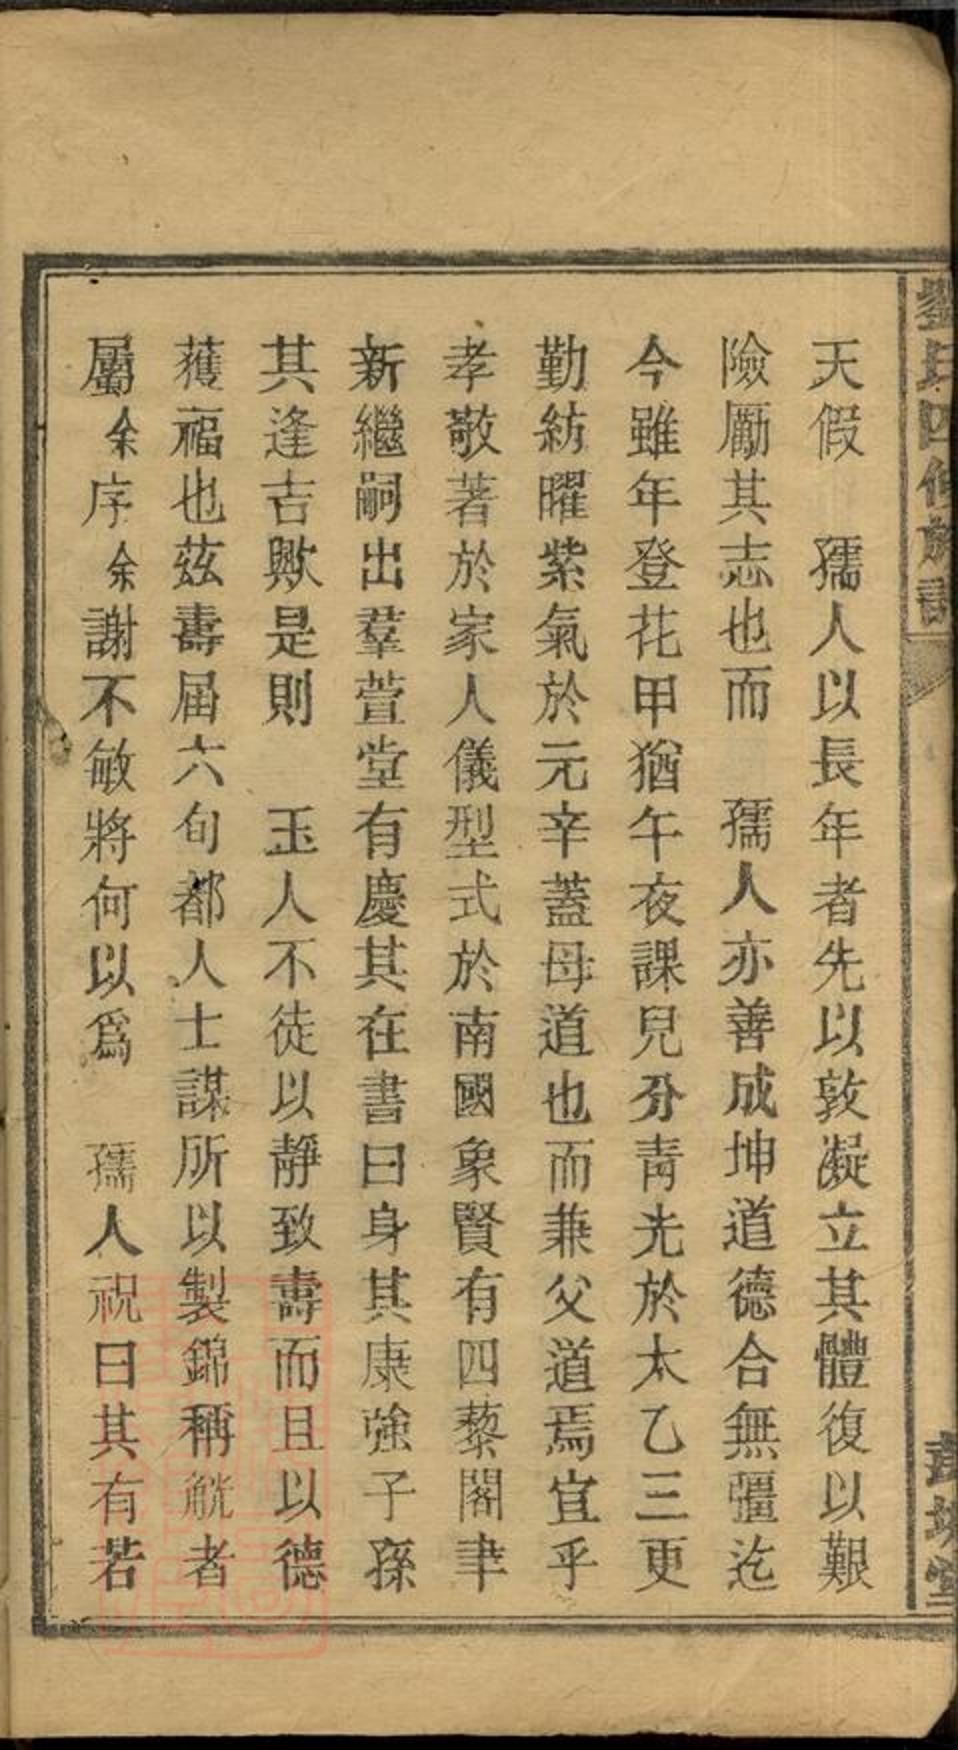 劉氏四修族譜
天假　孺人以長年者先以敦凝立其體復以艱
險勵其志也而　孺人亦善成坤道德合無疆迄
今雖年登花甲猶午夜課兒分青光於太乙三更
勤紡曜紫氣於元辛蓋母道也而兼父道焉宜乎
孝敬著於家人儀型式於南國象賢有四藜閣聿
新繼嗣出羣萱堂有慶其在書曰身其康強子孫
其逢吉歟是則　玉人不徒以靜致壽而且以德
獲福也茲壽屆六旬都人士謀所以製錦稱觥者
屬余序余謝不敏將何以為　孺人祝曰其有若